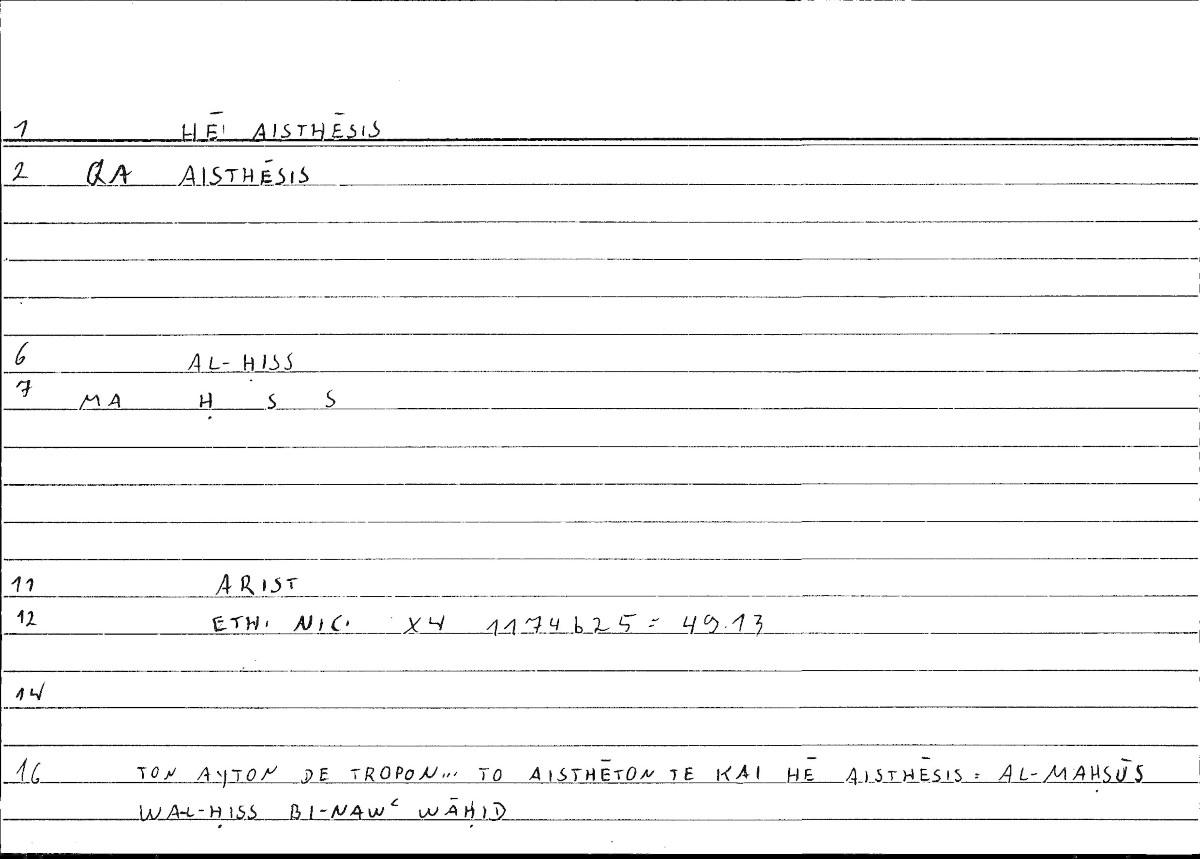 1 HĒ' AISTHĒSIS
2 QA AISTHĒSIS
6 AL-ḤISS
7 MA Ḥ S S
11 ARIST
12 ETH. NIC. X4 1174b25 = 49.13
14
16 TON AYTON DE TROPON... TO AISTHĒTON TE KAI HĒ AISTHĒSIS = AL-MAḤSŪS
WAL-ḤISS BI-NAWʿ WĀḤID